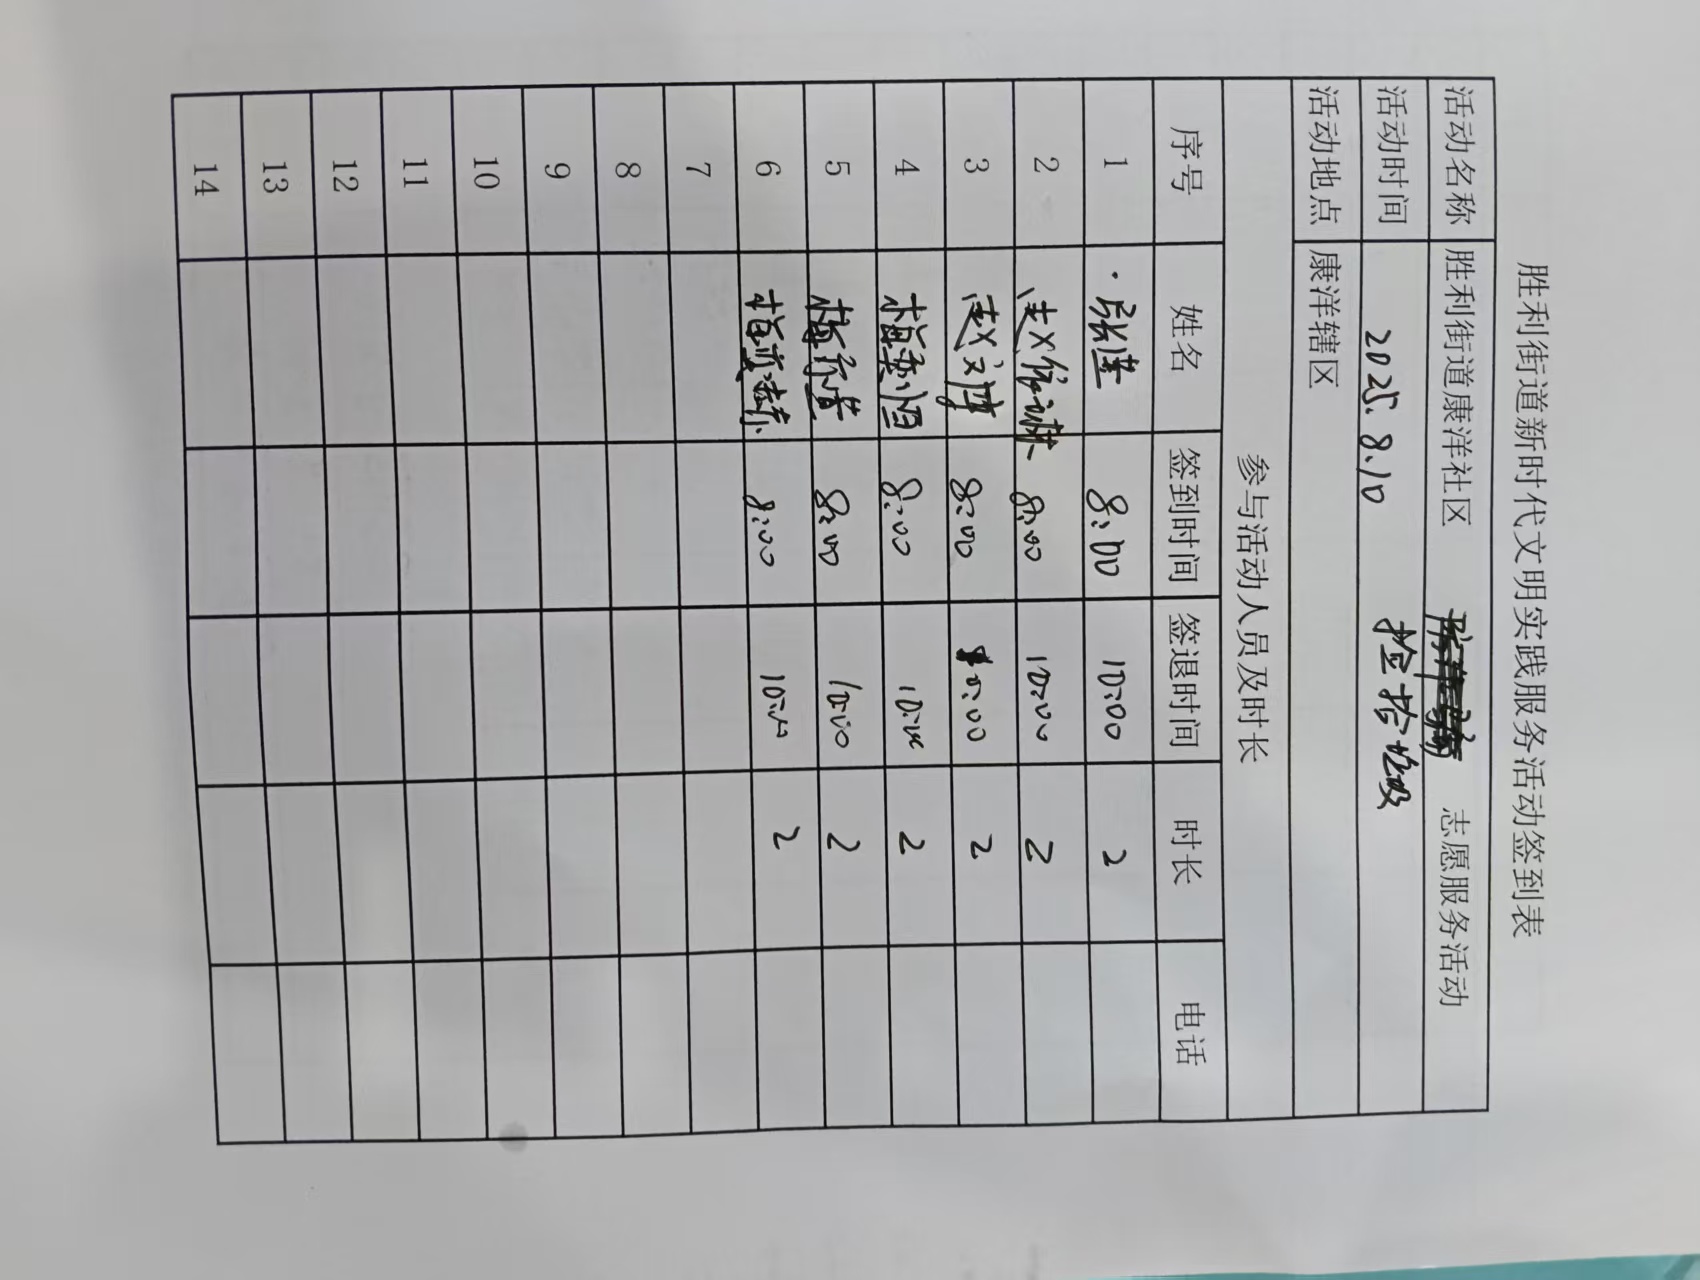 胜利街道新时代文明实践服务活动签到表
活动名称 胜利街道康洋社区 志愿服务活动
活动时间 2025.8.10 捡拾垃圾
活动地点 康洋辖区
参与活动人员及时长
序号 姓名 签到时间 签退时间 时长 电话
1 张进 8:00 10:00 2
2 赵 8:00 10:00 2
3 赵 8:00 10:00 2
4 梅 8:00 10:00 2
5 梅 8:00 10:00 2
6 梅 8:00 10:00 2
7
8
9
10
11
12
13
14